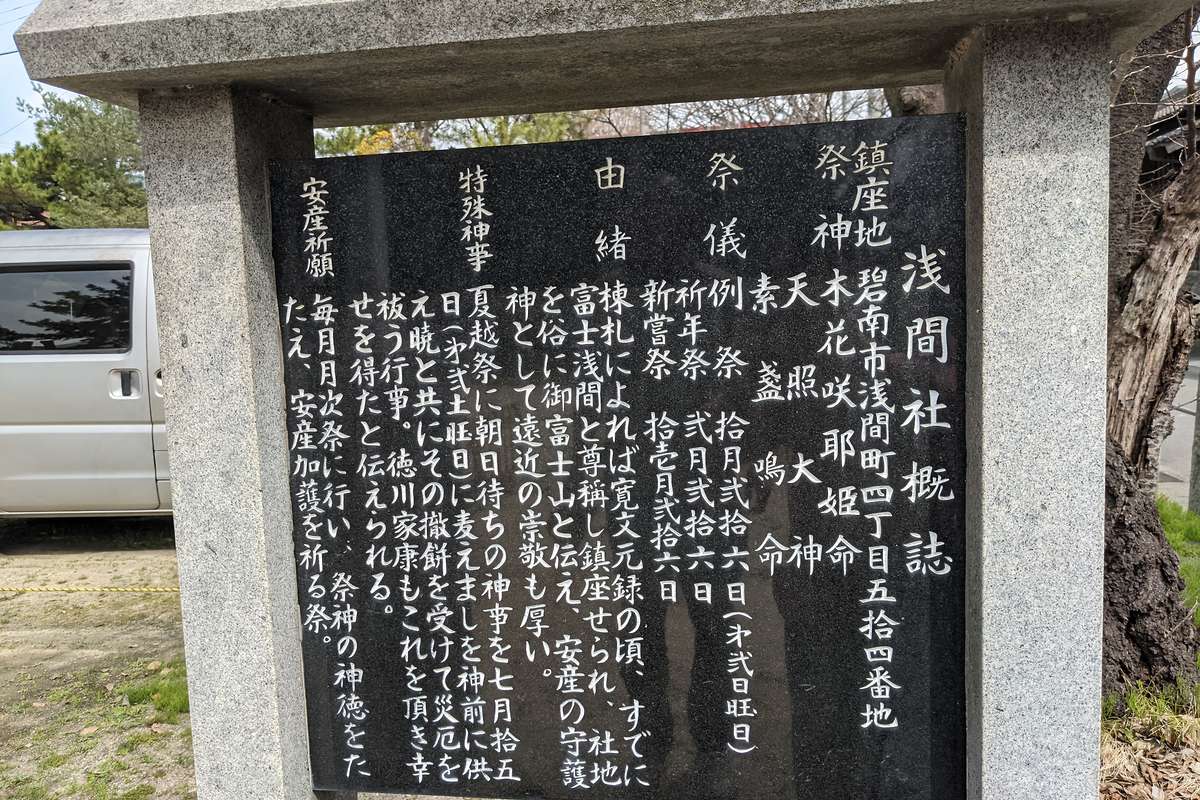 浅間社概誌
鎮座地 碧南市浅間町四丁目五拾四番地
祭神 木花咲耶姫命
天照大神
素盞鳴命
祭儀 例祭 拾月弐拾六日(才弐日旺日)
祈年祭 弐月弐拾六日
新嘗祭 拾壱月弐拾六日
由緒 棟札によれば寛文元録の頃、すでに
富士浅間と尊稱し鎮座せられ、社地
を俗に御富士山と伝え、安産の守護
神として遠近の崇敬も厚い。
特殊神事 夏越祭に朝日待ちの神事を七月拾五
日(才弐土旺日)に麦えましを神前に供
え暁と共にその撤餅を受けて災厄を
祓う行事。徳川家康もこれを頂き幸
せを得たと伝えられる。
安産祈願 毎月月次祭に行い、祭神の神徳をた
たえ、安産加護を祈る祭。